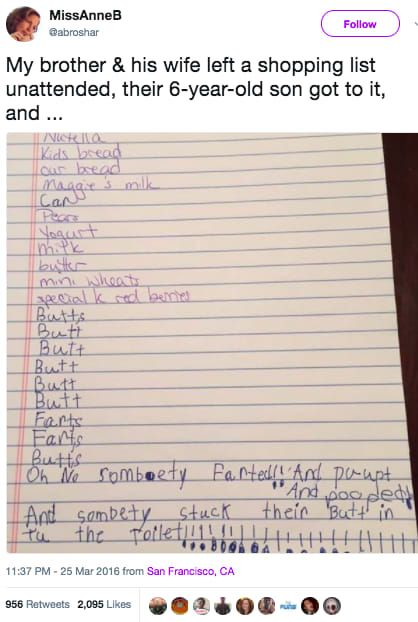 MissAnneB
@abroshar
Follow
My brother & his wife left a shopping list
unattended, their 6-year-old son got to it,
and ...
Nutella
Kids bread
our bread
Maggie's milk
Car
Pears
Yogurt
milk
butter
mini wheats
special k red berries
Butts
Butt
Butt
Butt
Butt
Butt
Farts
Farts
Butts
Oh No somboety Farted!! And pu-upt
And pooped
And sombety stuck their Butt in
tu the Toilet!!!!!!!!!!!!!!!!!!
11:37 PM - 25 Mar 2016 from San Francisco, CA
956 Retweets 2,095 Likes